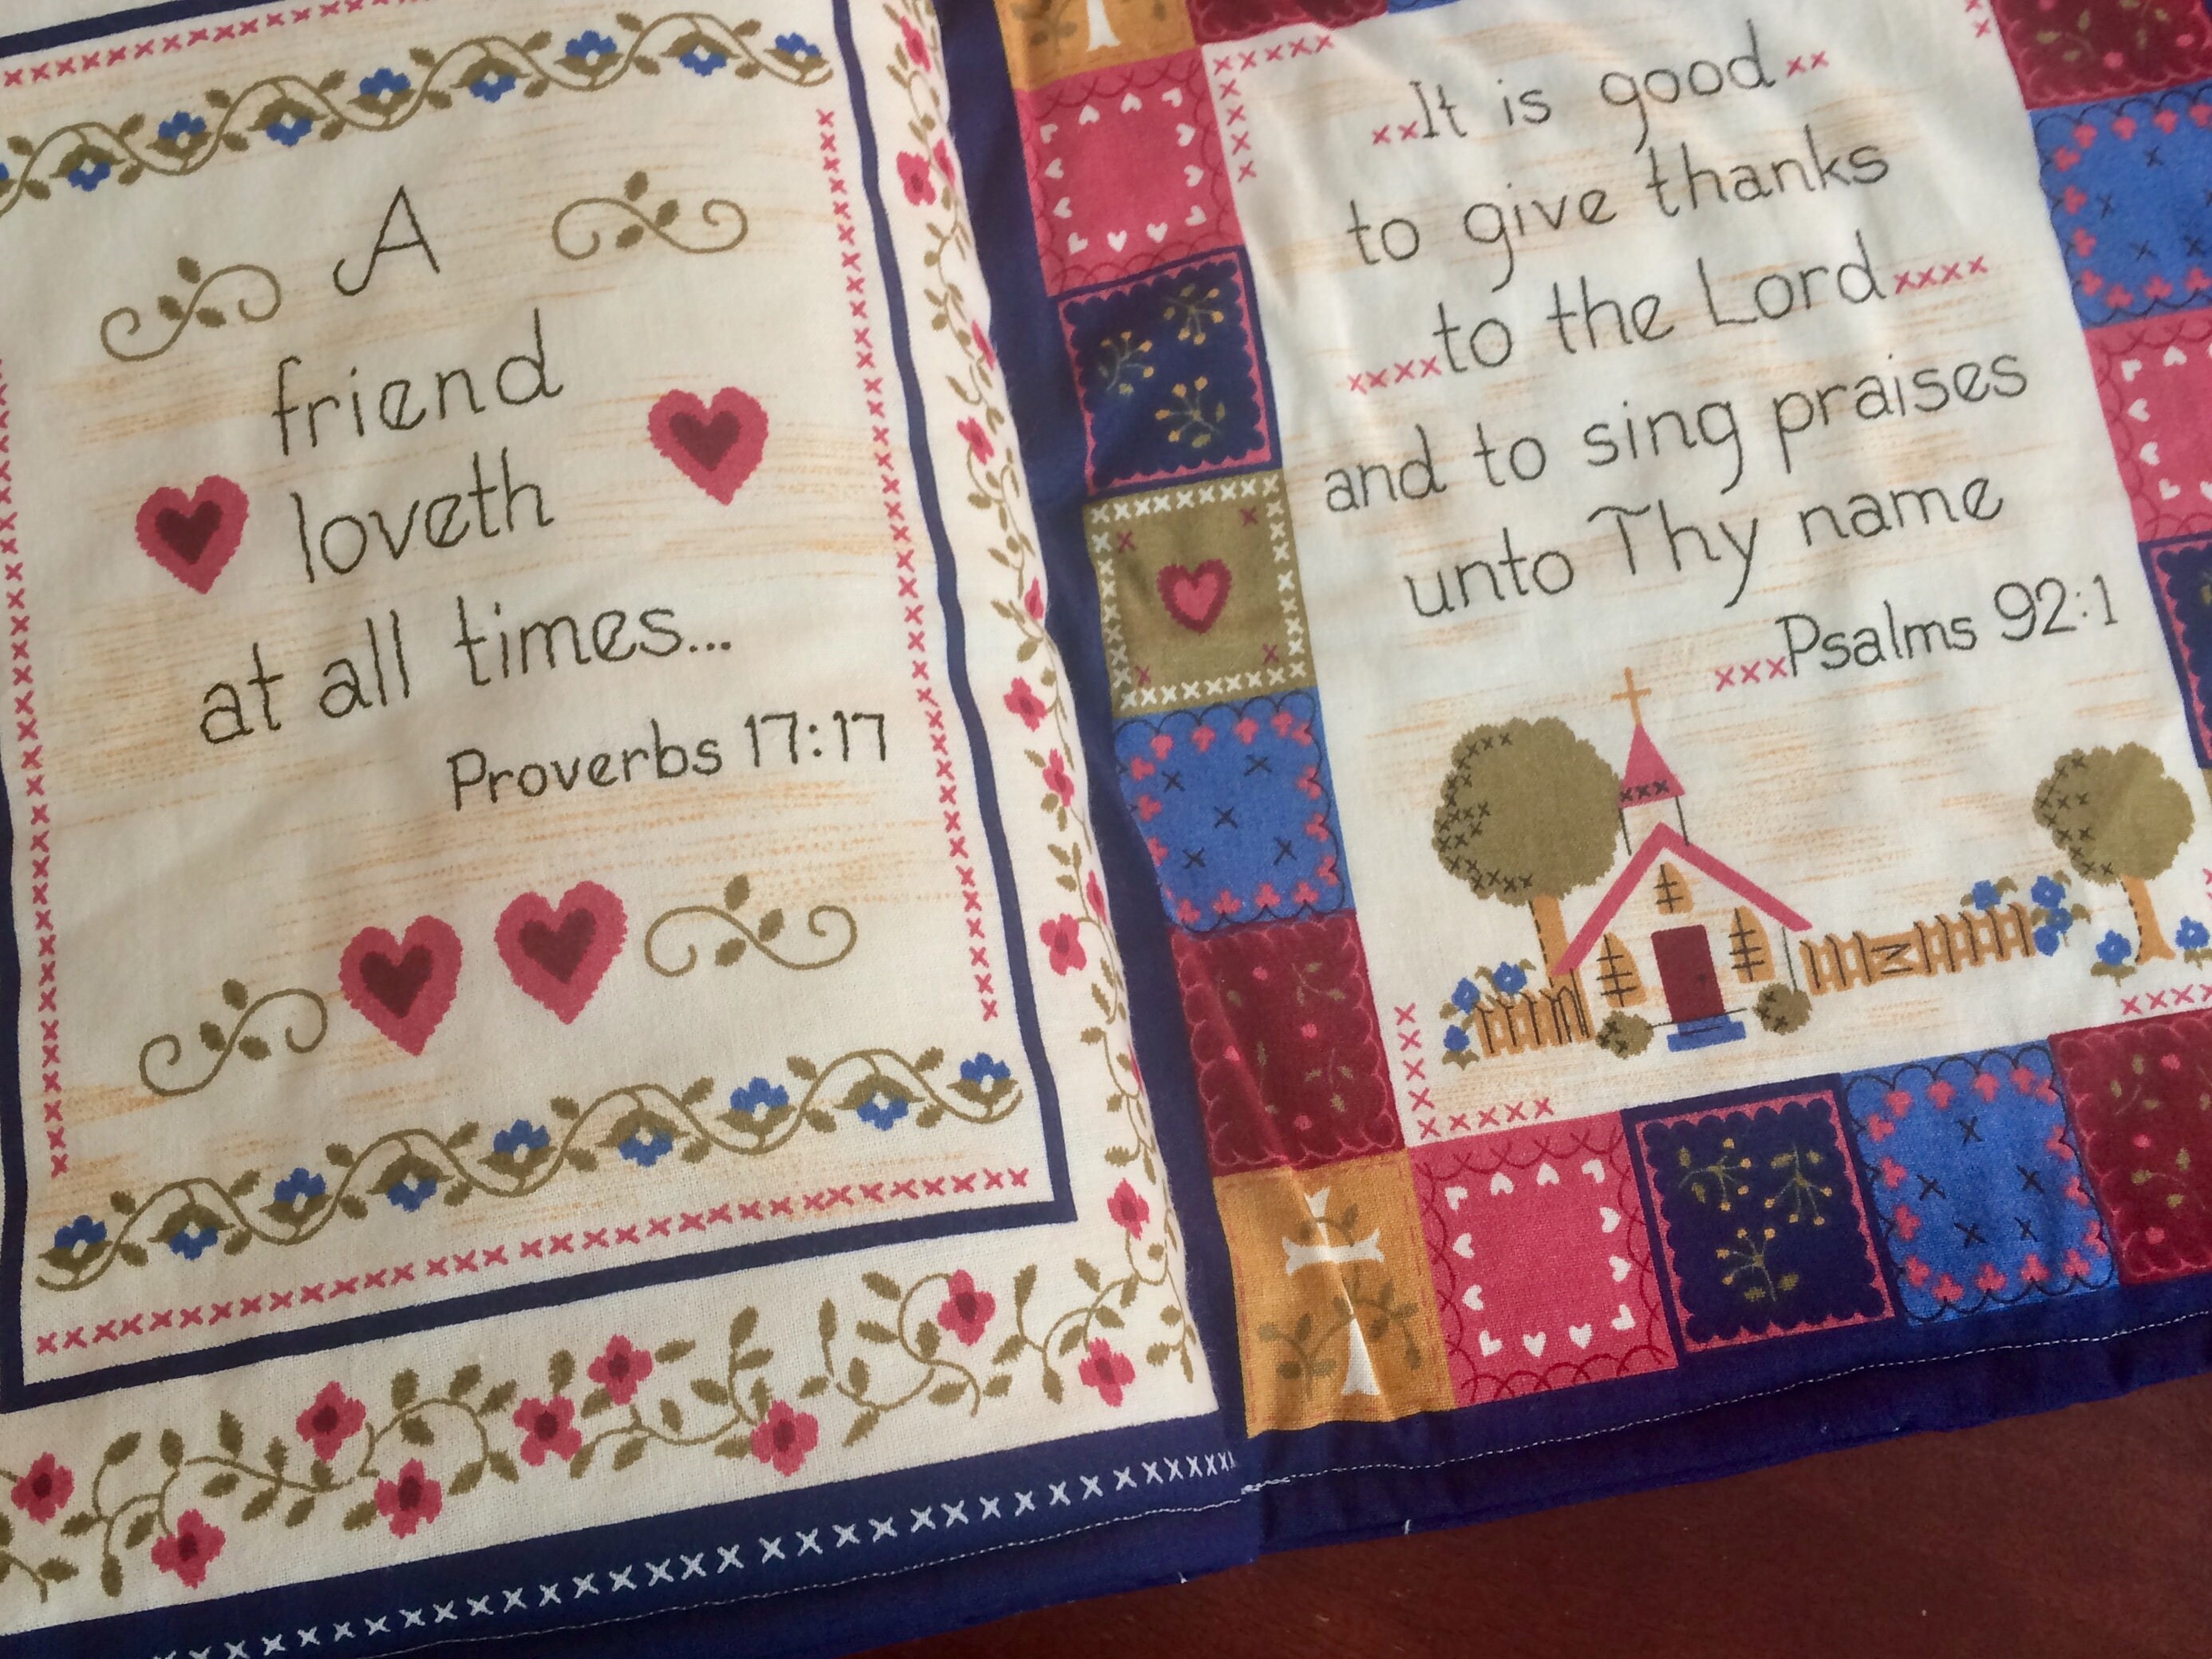 A
friend
loveth
at all times...
Proverbs 17:17
It is good
to give thanks
to the Lord
and to sing praises
unto Thy name
Psalms 92:1